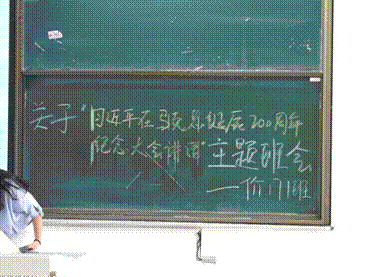 关于"习近平在马克思诞辰200周年
纪念大会讲话"主题班会
—价171班